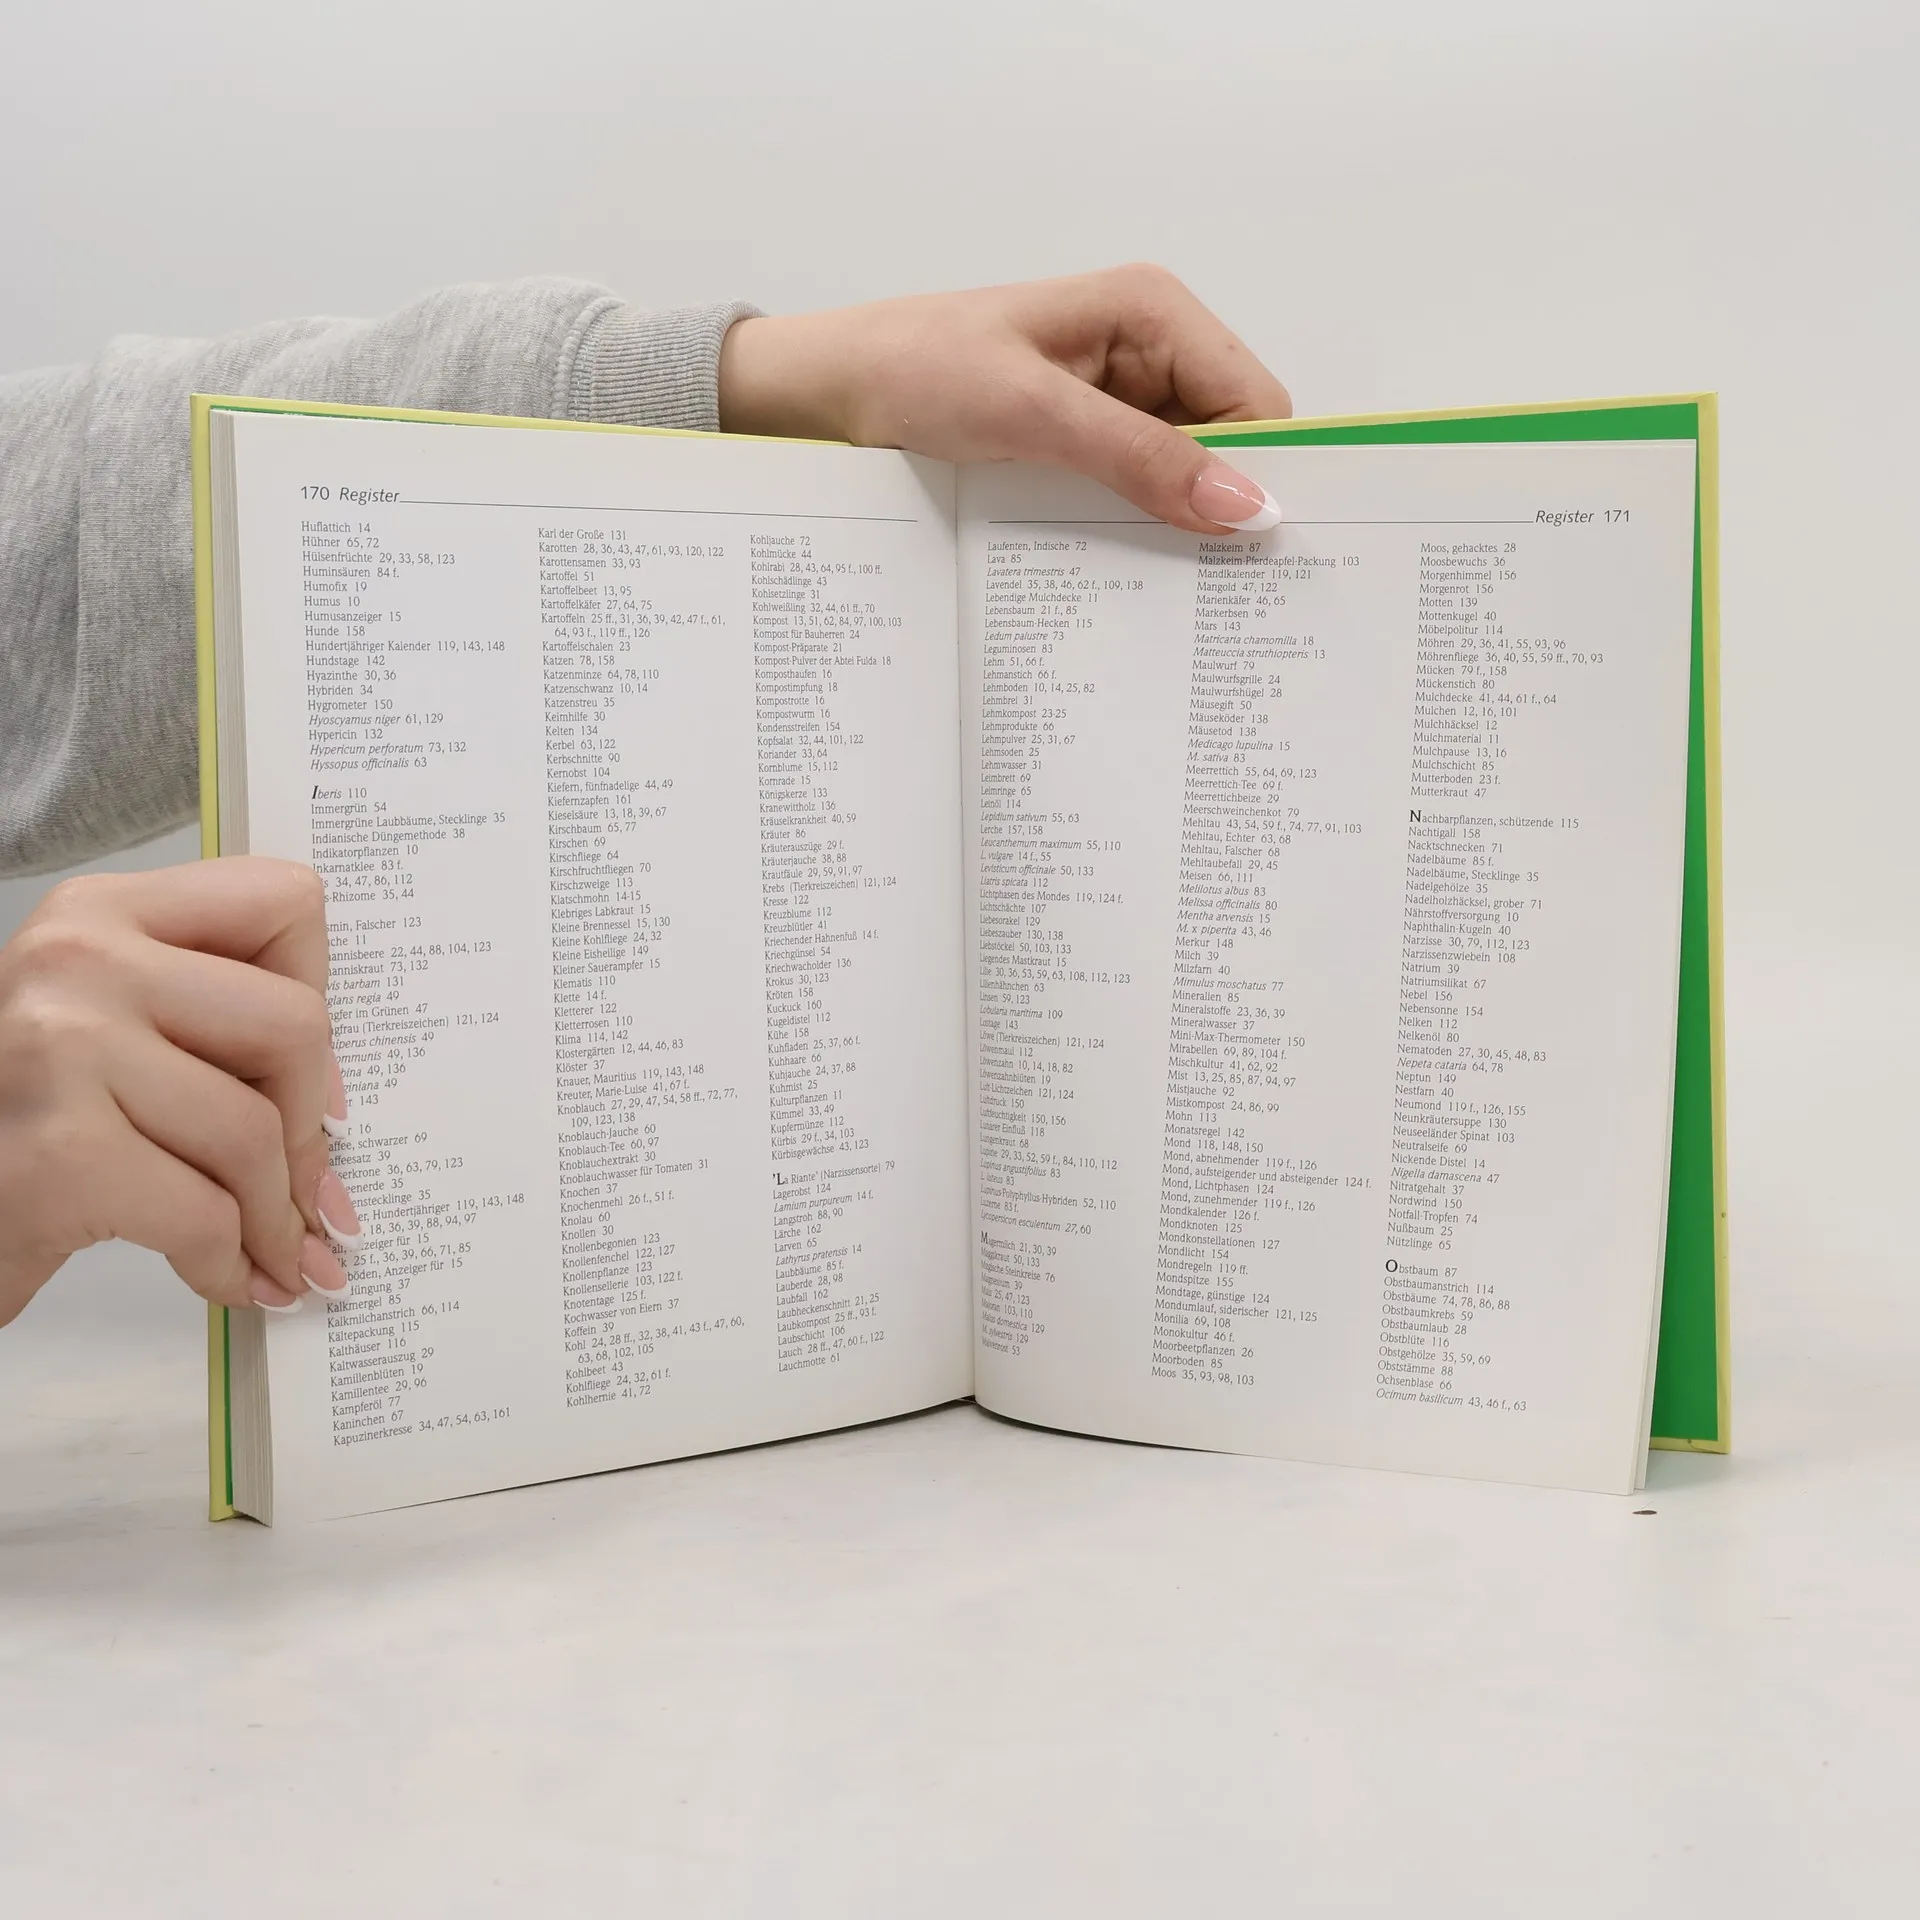 170 Register
Huflattich 14
Hühner 65, 72
Hülsenfrüchte 29, 33, 58, 123
Huminsäuren 84 f.
Humofix 19
Humus 10
Humusanzeiger 15
Hunde 158
Hundertjähriger Kalender 119, 143, 148
Hundstage 142
Hyazinthe 30, 36
Hybriden 34
Hygrometer 150
Hyoscyamus niger 61, 129
Hypericin 132
Hypericum perforatum 73, 132
Hyssopus officinalis 63
Iberis 110
Immergrün 54
Immergrüne Laubbäume, Stecklinge 35
Indianische Düngemethode 38
Indikatorpflanzen 10
Inkarnatklee 83 f.
34, 47, 86, 112
s-Rhizome 35, 44
smin, Falscher 123
che 11
annisbeere 22, 44, 88, 104, 123
anniskraut 73, 132
vis barbam 131
glans regia 49
ngfer im Grünen 47
ngfrau (Tierkreiszeichen) 121, 124
niperus chinensis 49
ommunis 49, 136
bina 49, 136
giniana 49
er 143
r 16
affee, schwarzer 69
affeesatz 39
iserkrone 36, 63, 79, 123
eenerde 35
enstecklinge 35
er, Hundertjähriger 119, 143, 148
18, 36, 39, 88, 94, 97
ali, nzeiger für 15
lk 25 f., 36, 39, 66, 71, 85
böden, Anzeiger für 15
düngung 37
Kalkmergel 85
Kalkmilchanstrich 66, 114
Kältepackung 115
Kalthäuser 116
Kaltwasserauszug 29
Kamillenblüten 19
Kamillentee 29, 96
Kampferöl 77
Kaninchen 67
Kapuzinerkresse 34, 47, 54, 63, 161
Karl der Große 131
Karotten 28, 36, 43, 47, 61, 93, 120, 122
Karottensamen 33, 93
Kartoffel 51
Kartoffelbeet 13, 95
Kartoffelkäfer 27, 64, 75
Kartoffeln 25 ff., 31, 36, 39, 42, 47 f., 61,
64, 93 f., 119 ff., 126
Kartoffelschalen 23
Katzen 78, 158
Katzenminze 64, 78, 110
Katzenschwanz 10, 14
Katzenstreu 35
Keimhilfe 30
Kelten 134
Kerbel 63, 122
Kerbschnitte 90
Kernobst 104
Kiefern, fünfnadelige 44, 49
Kiefernzapfen 161
Kieselsäure 13, 18, 39, 67
Kirschbaum 65, 77
Kirschen 69
Kirschfliege 64
Kirschfruchtfliegen 70
Kirschzweige 113
Klatschmohn 14-15
Klebriges Labkraut 15
Kleine Brennessel 15, 130
Kleine Kohlfliege 24, 32
Kleine Eisheilige 149
Kleiner Sauerampfer 15
Klematis 110
Klette 14 f.
Kletterer 122
Kletterrosen 110
Klima 114, 142
Klostergärten 12, 44, 46, 83
Klöster 37
Knauer, Mauritius 119, 143, 148
Kreuter, Marie-Luise 41, 67 f.
Knoblauch 27, 29, 47, 54, 58 ff., 72, 77,
109, 123, 138
Knoblauch-Jauche 60
Knoblauch-Tee 60, 97
Knoblauchextrakt 30
Knoblauchwasser für Tomaten 31
Knochen 37
Knochenmehl 26 f., 51 f.
Knolau 60
Knollen 30
Knollenbegonien 123
Knollenfenchel 122, 127
Knollenpflanze 123
Knollensellerie 103, 122 f.
Knotentage 125 f.
Kochwasser von Eiern 37
Koffein 39
Kohl 24, 28 ff., 32, 38, 41, 43 f., 47, 60,
63, 68, 102, 105
Kohlbeet 43
Kohlfliege 24, 32, 61 f.
Kohlhernie 41, 72
Kohljauche 72
Kohlmücke 44
Kohlrabi 28, 43, 64, 95 f., 100 ff.
Kohlschädlinge 43
Kohlsetzlinge 31
Kohlweißling 32, 44, 61 ff., 70
Kompost 13, 51, 62, 84, 97, 100, 103
Kompost für Bauherren 24
Kompost-Präparate 21
Kompost-Pulver der Abtei Fulda 18
Komposthaufen 16
Kompostimpfung 18
Kompostrotte 16
Kompostwurm 16
Kondensstreifen 154
Kopfsalat 32, 44, 101, 122
Koriander 33, 64
Kornblume 15, 112
Kornrade 15
Königskerze 133
Kranewittholz 136
Kräuselkrankheit 40, 59
Kräuter 86
Kräuterauszüge 29 f.
Kräuterjauche 38, 88
Krautfäule 29, 59, 91, 97
Krebs (Tierkreiszeichen) 121, 124
Kresse 122
Kreuzblume 112
Kreuzblütler 41
Kriechender Hahnenfuß 14 f.
Kriechgünsel 54
Kriechwacholder 136
Krokus 30, 123
Kröten 158
Kuckuck 160
Kugeldistel 112
Kühe 158
Kuhfladen 25, 37, 66 f.
Kuhhaare 66
Kuhjauche 24, 37, 88
Kuhmist 25
Kulturpflanzen 11
Kümmel 33, 49
Kupfermünze 112
Kürbis 29 f., 34, 103
Kürbisgewächse 43, 123
'La Riante' (Narzissensorte) 79
Lagerobst 124
Lamium purpureum 14 f.
Langstroh 88, 90
Lärche 162
Larven 65
Lathyrus pratensis 14
Laubbäume 85 f.
Lauberde 28, 98
Laubfall 162
Laubheckenschnitt 21, 25
Laubkompost 25 ff., 93 f.
Laubschicht 106
Lauch 28 ff., 47, 60 f., 122
Lauchmotte 61
Register 171
Laufenten, Indische 72
Lava 85
Lavatera trimestris 47
Lavendel 35, 38, 46, 62 f., 109, 138
Lebendige Mulchdecke 11
Lebensbaum 21 f., 85
Lebensbaum-Hecken 115
Ledum palustre 73
Leguminosen 83
Lehm 51, 66 f.
Lehmanstich 66 f.
Lehmboden 10, 14, 25, 82
Lehmbrei 31
Lehmkompost 23-25
Lehmprodukte 66
Lehmpulver 25, 31, 67
Lehmsoden 25
Lehmwasser 31
Leimbrett 69
Leimringe 65
Leinöl 114
Lepidium sativum 55, 63
Lerche 157, 158
Leucanthemum maximum 55, 110
L. vulgare 14 f., 55
Levisticum officinale 50, 133
Liatris spicata 112
Lichtphasen des Mondes 119, 124 f.
Lichtschächte 107
Liebesorakel 129
Liebeszauber 130, 138
Liebstöckel 50, 103, 133
Liegendes Mastkraut 15
Lilie 30, 36, 53, 59, 63, 108, 112, 123
Lilienhähnchen 63
Linsen 59, 123
Lobularia maritima 109
Lostage 143
Löwe (Tierkreiszeichen) 121, 124
Löwenmaul 112
Löwenzahn 10, 14, 18, 82
Löwenzahnblüten 19
Luft-Lichtzeichen 121, 124
Luftdruck 150
Luftfeuchtigkeit 150, 156
Lunarer Einfluß 118
Lungenkraut 68
Lupine 29, 33, 52, 59 f., 84, 110, 112
Lupinus angustifolius 83
L. luteus 83
Lupinus-Polyphyllus-Hybriden 52, 110
Luzerne 83 f.
Lycopersicon esculentum 27, 60
Magermilch 21, 30, 39
Maggikraut 50, 133
Magische Steinkreise 76
Magnesium 39
Mais 25, 47, 123
Majoran 103, 110
Malus domestica 129
M. sylvestris 129
Malventrost 53
Malzkeim 87
Malzkeim-Pferdeapfel-Packung 103
Mandlkalender 119, 121
Mangold 47, 122
Marienkäfer 46, 65
Markerbsen 96
Mars 143
Matricaria chamomilla 18
Matteuccia struthiopteris 13
Maulwurf 79
Maulwurfsgrille 24
Maulwurfshügel 28
Mäusegift 50
Mäuseköder 138
Mäusetod 138
Medicago lupulina 15
M. sativa 83
Meerrettich 55, 64, 69, 123
Meerrettich-Tee 69 f.
Meerrettichbeize 29
Meerschweinchenkot 79
Mehltau 43, 54, 59 f., 74, 77, 91, 103
Mehltau, Echter 63, 68
Mehltau, Falscher 68
Mehltaubefall 29, 45
Meisen 66, 111
Melilotus albus 83
Melissa officinalis 80
Mentha arvensis 15
M. x piperita 43, 46
Merkur 148
Milch 39
Milzfarn 40
Mimulus moschatus 77
Mineralien 85
Mineralstoffe 23, 36, 39
Mineralwasser 37
Mini-Max-Thermometer 150
Mirabellen 69, 89, 104 f.
Mischkultur 41, 62, 92
Mist 13, 25, 85, 87, 94, 97
Mistjauche 92
Mistkompost 24, 86, 99
Mohn 113
Monatsregel 142
Mond 118, 148, 150
Mond, abnehmender 119 f., 126
Mond, aufsteigender und absteigender 124 f.
Mond, Lichtphasen 124
Mond, zunehmender 119 f., 126
Mondkalender 126 f.
Mondknoten 125
Mondkonstellationen 127
Mondlicht 154
Mondregeln 119 ff.
Mondspitze 155
Mondtage, günstige 124
Mondumlauf, siderischer 121, 125
Monilia 69, 108
Monokultur 46 f.
Moorbeetpflanzen 26
Moorboden 85
Moos 35, 93, 98, 103
Moos, gehacktes 28
Moosbewuchs 36
Morgenhimmel 156
Morgenrot 156
Motten 139
Mottenkugel 40
Möbelpolitur 114
Möhren 29, 36, 41, 55, 93, 96
Möhrenfliege 36, 40, 55, 59 ff., 70, 93
Mücken 79 f., 158
Mückenstich 80
Mulchdecke 41, 44, 61 f., 64
Mulchen 12, 16, 101
Mulchhäcksel 12
Mulchmaterial 11
Mulchpause 13, 16
Mulchschicht 85
Mutterboden 23 f.
Mutterkraut 47
Nachbarpflanzen, schützende 115
Nachtigall 158
Nacktschnecken 71
Nadelbäume 85 f.
Nadelbäume, Stecklinge 35
Nadelgehölze 35
Nadelholzhäcksel, grober 71
Nährstoffversorgung 10
Naphthalin-Kugeln 40
Narzisse 30, 79, 112, 123
Narzissenzwiebeln 108
Natrium 39
Natriumsilikat 67
Nebel 156
Nebensonne 154
Nelken 112
Nelkenöl 80
Nematoden 27, 30, 45, 48, 83
Nepeta cataria 64, 78
Neptun 149
Nestfarn 40
Neumond 119 f., 126, 155
Neunkräutersuppe 130
Neuseeländer Spinat 103
Neutralseife 69
Nickende Distel 14
Nigella damascena 47
Nitratgehalt 37
Nordwind 150
Notfall-Tropfen 74
Nußbaum 25
Nützlinge 65
Obstbaum 87
Obstbaumanstrich 114
Obstbäume 74, 78, 86, 88
Obstbaumkrebs 59
Obstbaumlaub 28
Obstblüte 116
Obstgehölze 35, 59, 69
Obststämme 88
Ochsenblase 66
Ocimum basilicum 43, 46 f., 63